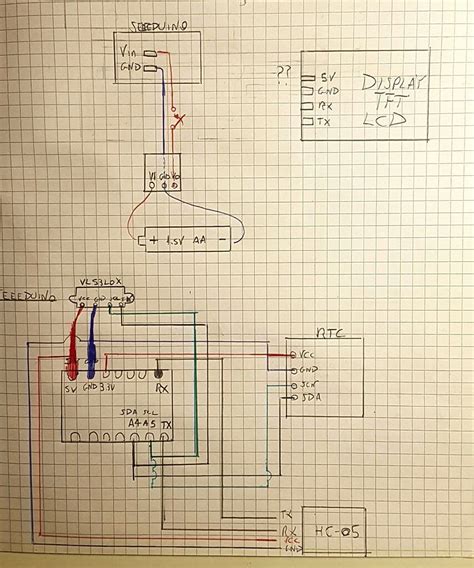 SEEEDUINO
Vin
GND
??
5V
GND
RX
TX
DISPLAY
TFT
LCD
VI GND VO
+ 1.5V AA -
EEEDUINO
VL53L0X
VCC GND SCL
5V GND 3.3V RX
SDA SCL
A4 A5 TX
RTC
VCC
GND
SCL
SDA
TX
RX
VCC
GND
HC-05